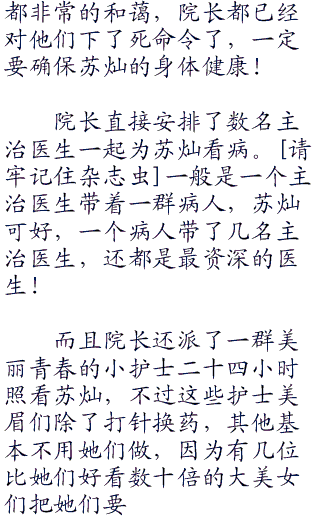 都非常的和蔼，院长都已经
对他们下了死命令了，一定
要确保苏灿的身体健康！
院长直接安排了数名主
治医生一起为苏灿看病。[请
牢记住杂志虫]一般是一个主
治医生带着一群病人，苏灿
可好，一个病人带了几名主
治医生，还都是最资深的医
生！
而且院长还派了一群美
丽青春的小护士二十四小时
照看苏灿，不过这些护士美
眉们除了打针换药，其他基
本不用她们做，因为有几位
比她们好看数十倍的大美女
们把她们要